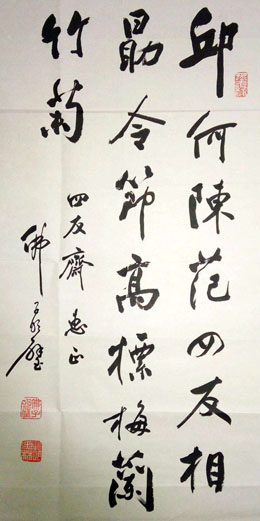 邱何陳范四友相
勗令節高標梅蘭
竹菊
四友齋 惠正
佛